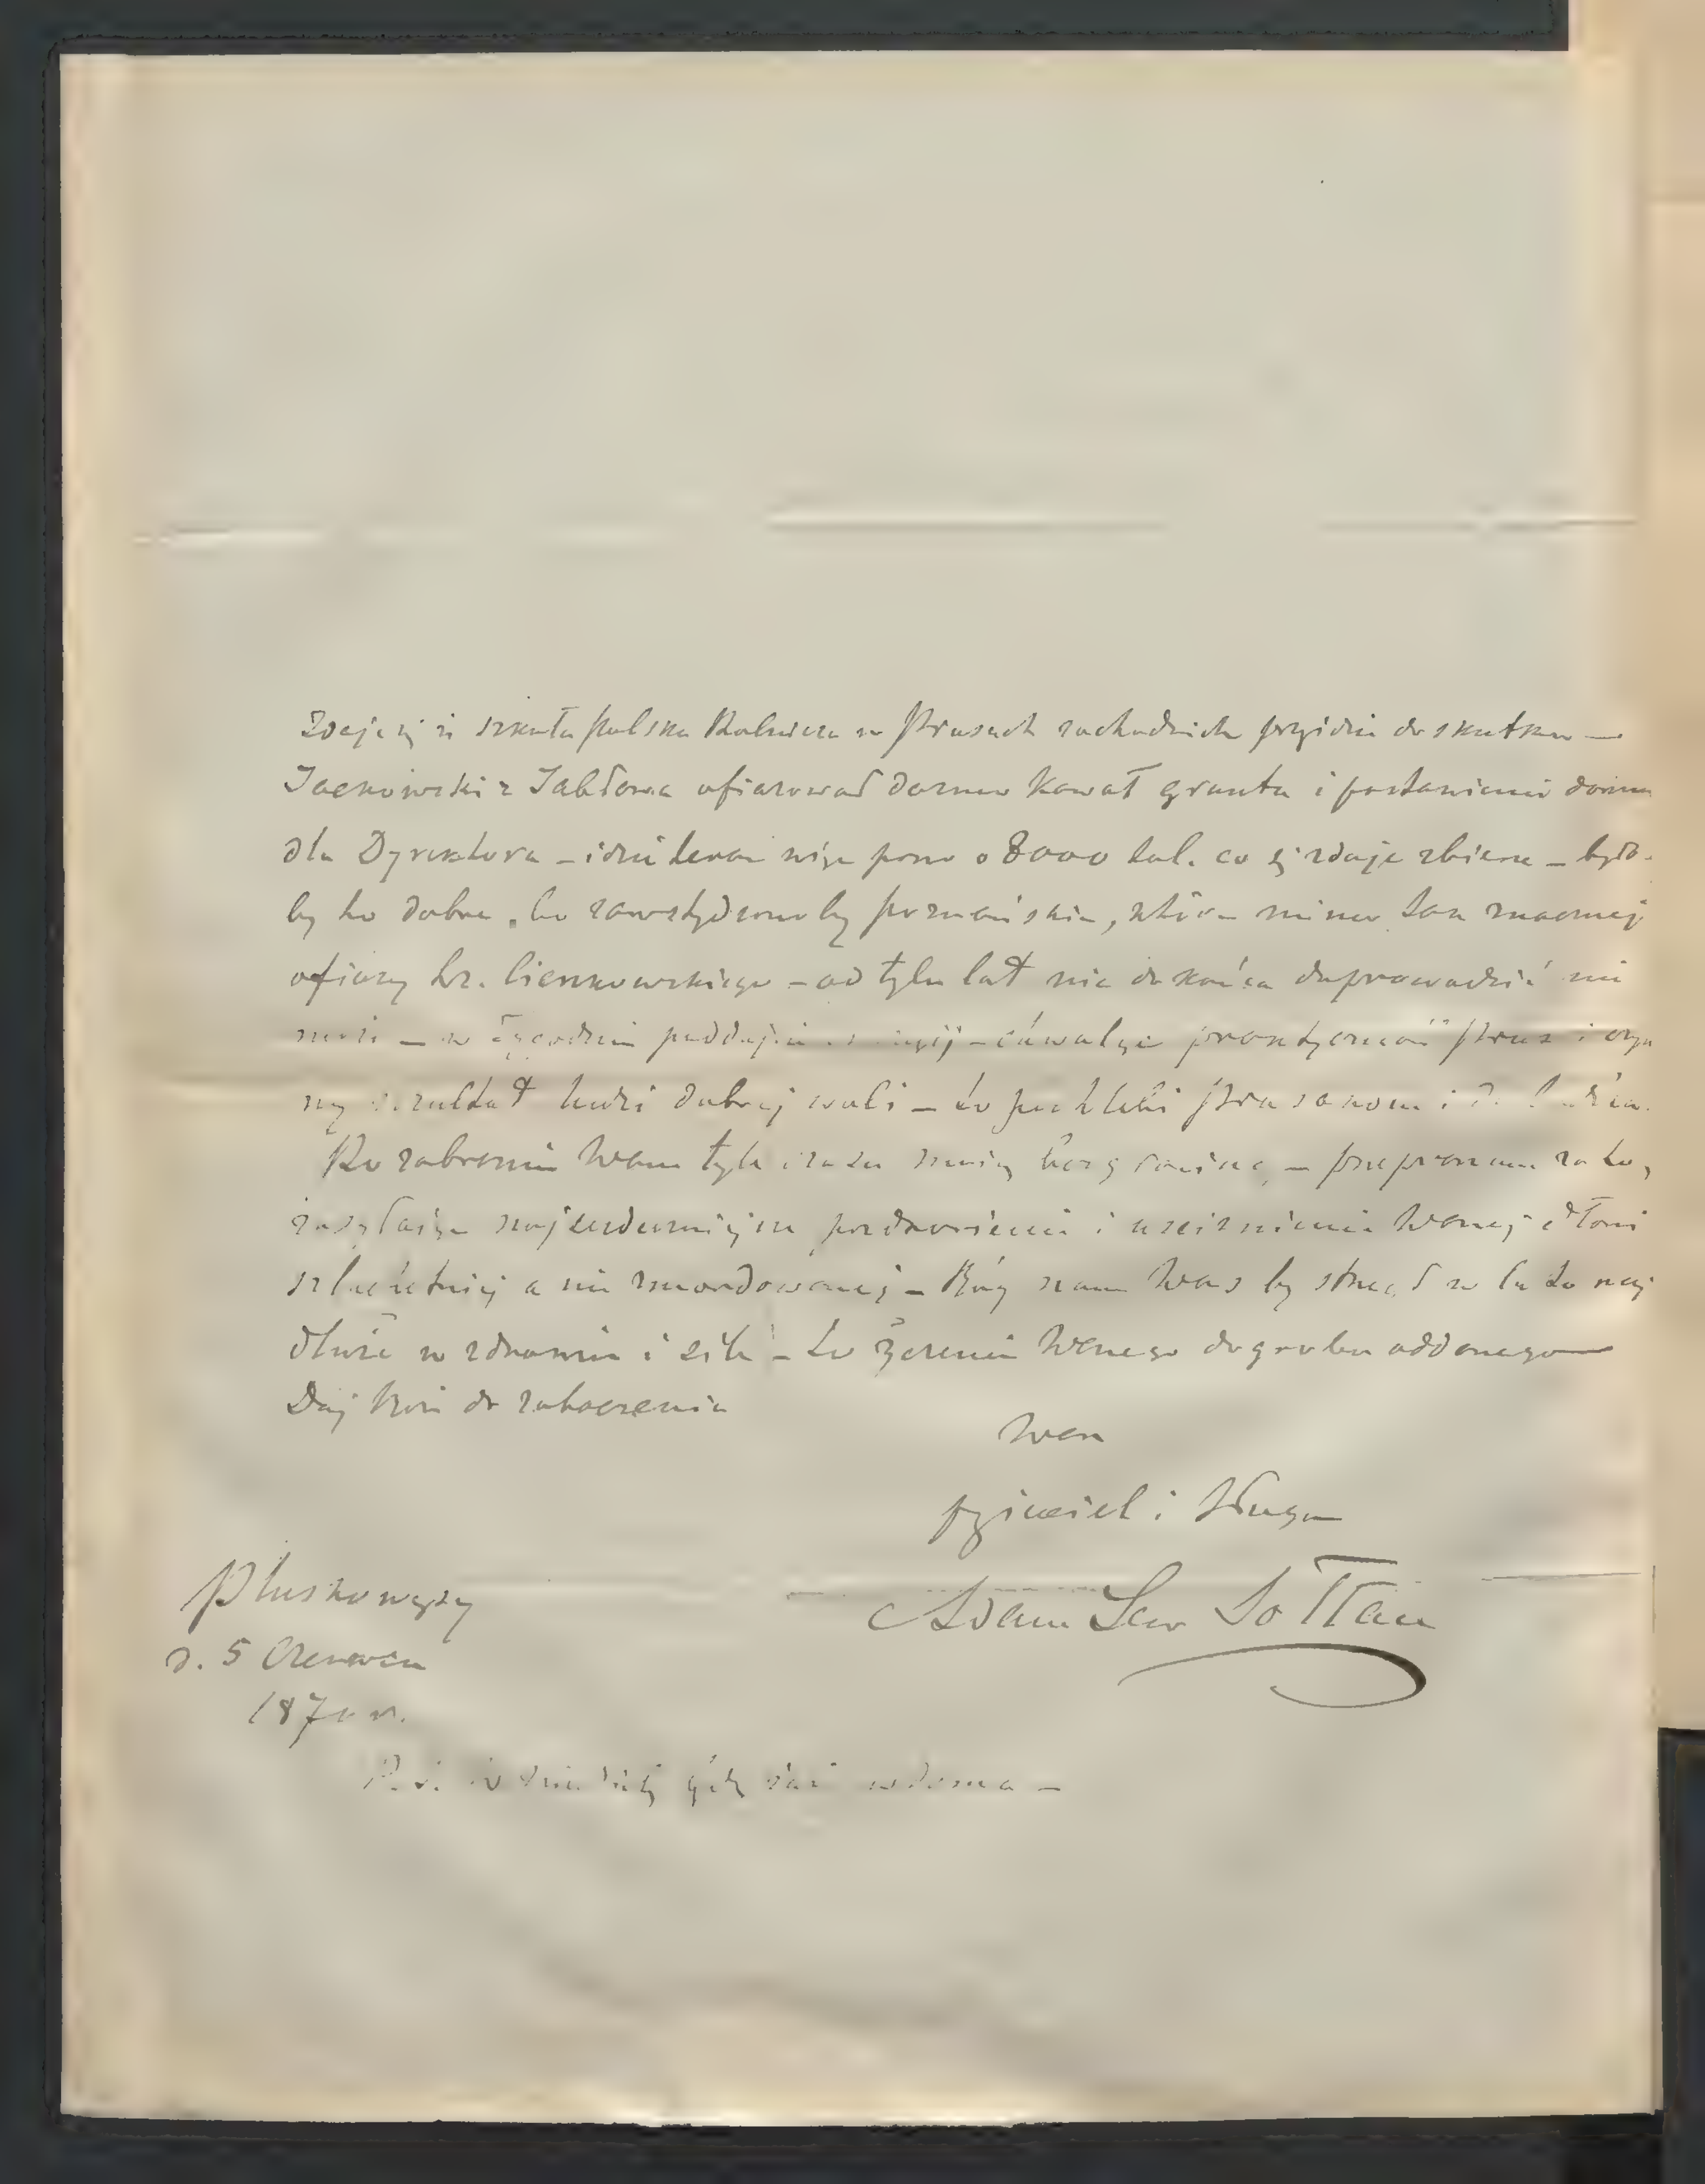 Zdaje się iż szkoła polska Rolnicza w Prusach zachodnich przyjdzie do skutku —
Jackowski z Jabłowa ofiarował darmo kawał gruntu i postawienie domu
dla Dyrektora — idzie teraz więc pono o 8000 tal. co się zdaje zbierze — było-
by to dobre, bo zawstydzonoby poznańskie, które mimo tak znacznej
ofiary hr. Cieszkowskiego — od tylu lat nic do końca doprowadzić nie
może — w poddając chwaląc praktyczność Prus i
ny rezultat ludzi dobrej woli — to pochlebi Prusakom i
Ko zabranie Wam tyle czasu moją — przepraszam za to,
zasyłając najserdeczniejsze pozdrowienia i uściśnienia Waszej dłoni
szlachetnej a nie zmordowanej — Bóg nam Was by strzegł w lata naj
dłuższe w zdrowiu i sile — to życzenie Waszego do grobu oddanego
Daj Boże do zobaczenia
Wasz
przyjaciel i sługa
Adam Lew Sołtan
Pluskowęsy
d. 5 Czerwca
1870 r.
P.S. w domu —